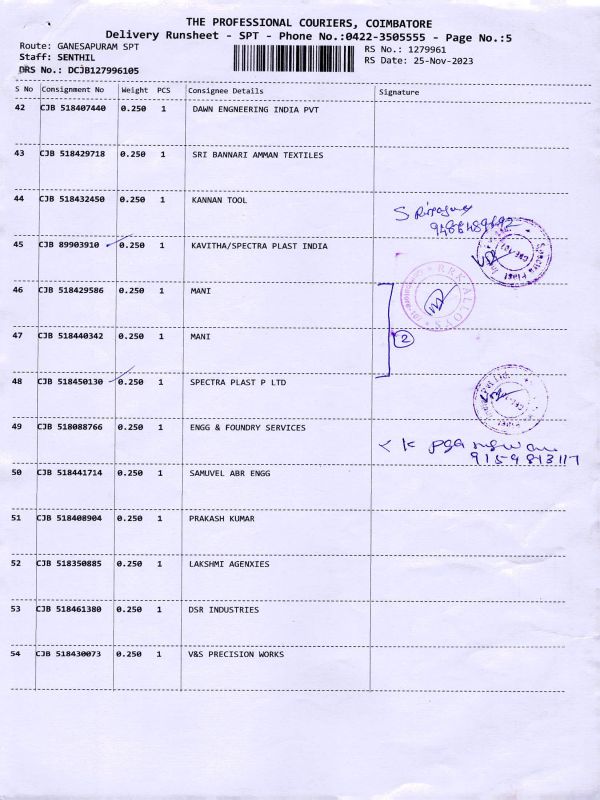 THE PROFESSIONAL COURIERS, COIMBATORE
Delivery Runsheet - SPT - Phone No.:0422-3505555 - Page No.:5
Route: GANESAPURAM SPT
RS No.: 1279961
Staff: SENTHIL
RS Date: 25-Nov-2023
DRS No.: DCJB127996105
S No Consignment No Weight PCS Consignee Details Signature
42 CJB 518407440 0.250 1 DAWN ENGNEERING INDIA PVT
43 CJB 518429718 0.250 1 SRI BANNARI AMMAN TEXTILES
44 CJB 518432450 0.250 1 KANNAN TOOL
45 CJB 89903910 0.250 1 KAVITHA/SPECTRA PLAST INDIA
Spectra Plast
46 CJB 518429586 0.250 1 MANI
R.R.K ALLOYS
47 CJB 518440342 0.250 1 MANI
2
48 CJB 518450130 0.250 1 SPECTRA PLAST P LTD
49 CJB 518088766 0.250 1 ENGG & FOUNDRY SERVICES
9159843117
50 CJB 518441714 0.250 1 SAMUVEL ABR ENGG
51 CJB 518408904 0.250 1 PRAKASH KUMAR
52 CJB 518350885 0.250 1 LAKSHMI AGENXIES
53 CJB 518461380 0.250 1 DSR INDUSTRIES
54 CJB 518430073 0.250 1 V&S PRECISION WORKS